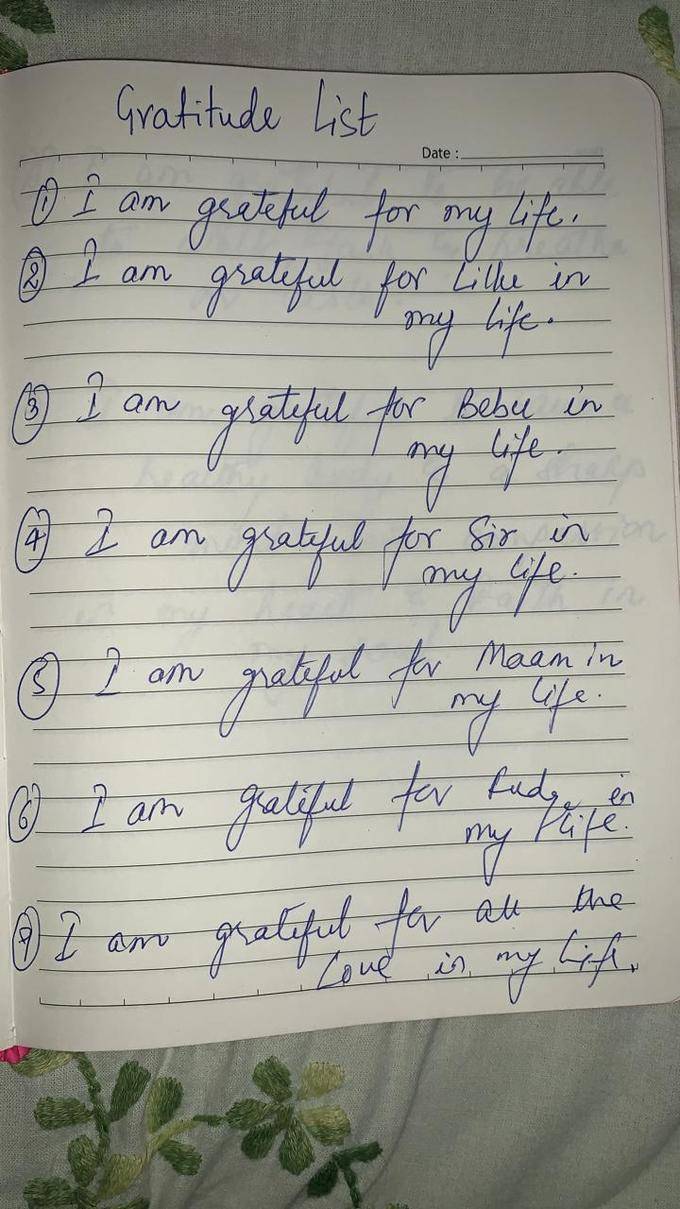 Gratitude List
Date :
① I am grateful for my life.
② I am grateful for Lillu in
my life.
③ I am grateful for Bebu in
my life.
④ I am grateful for Sir in
my life.
⑤ I am grateful for Maam in
my life.
⑥ I am grateful for in
my life.
⑦ I am grateful for all the
love in my life.